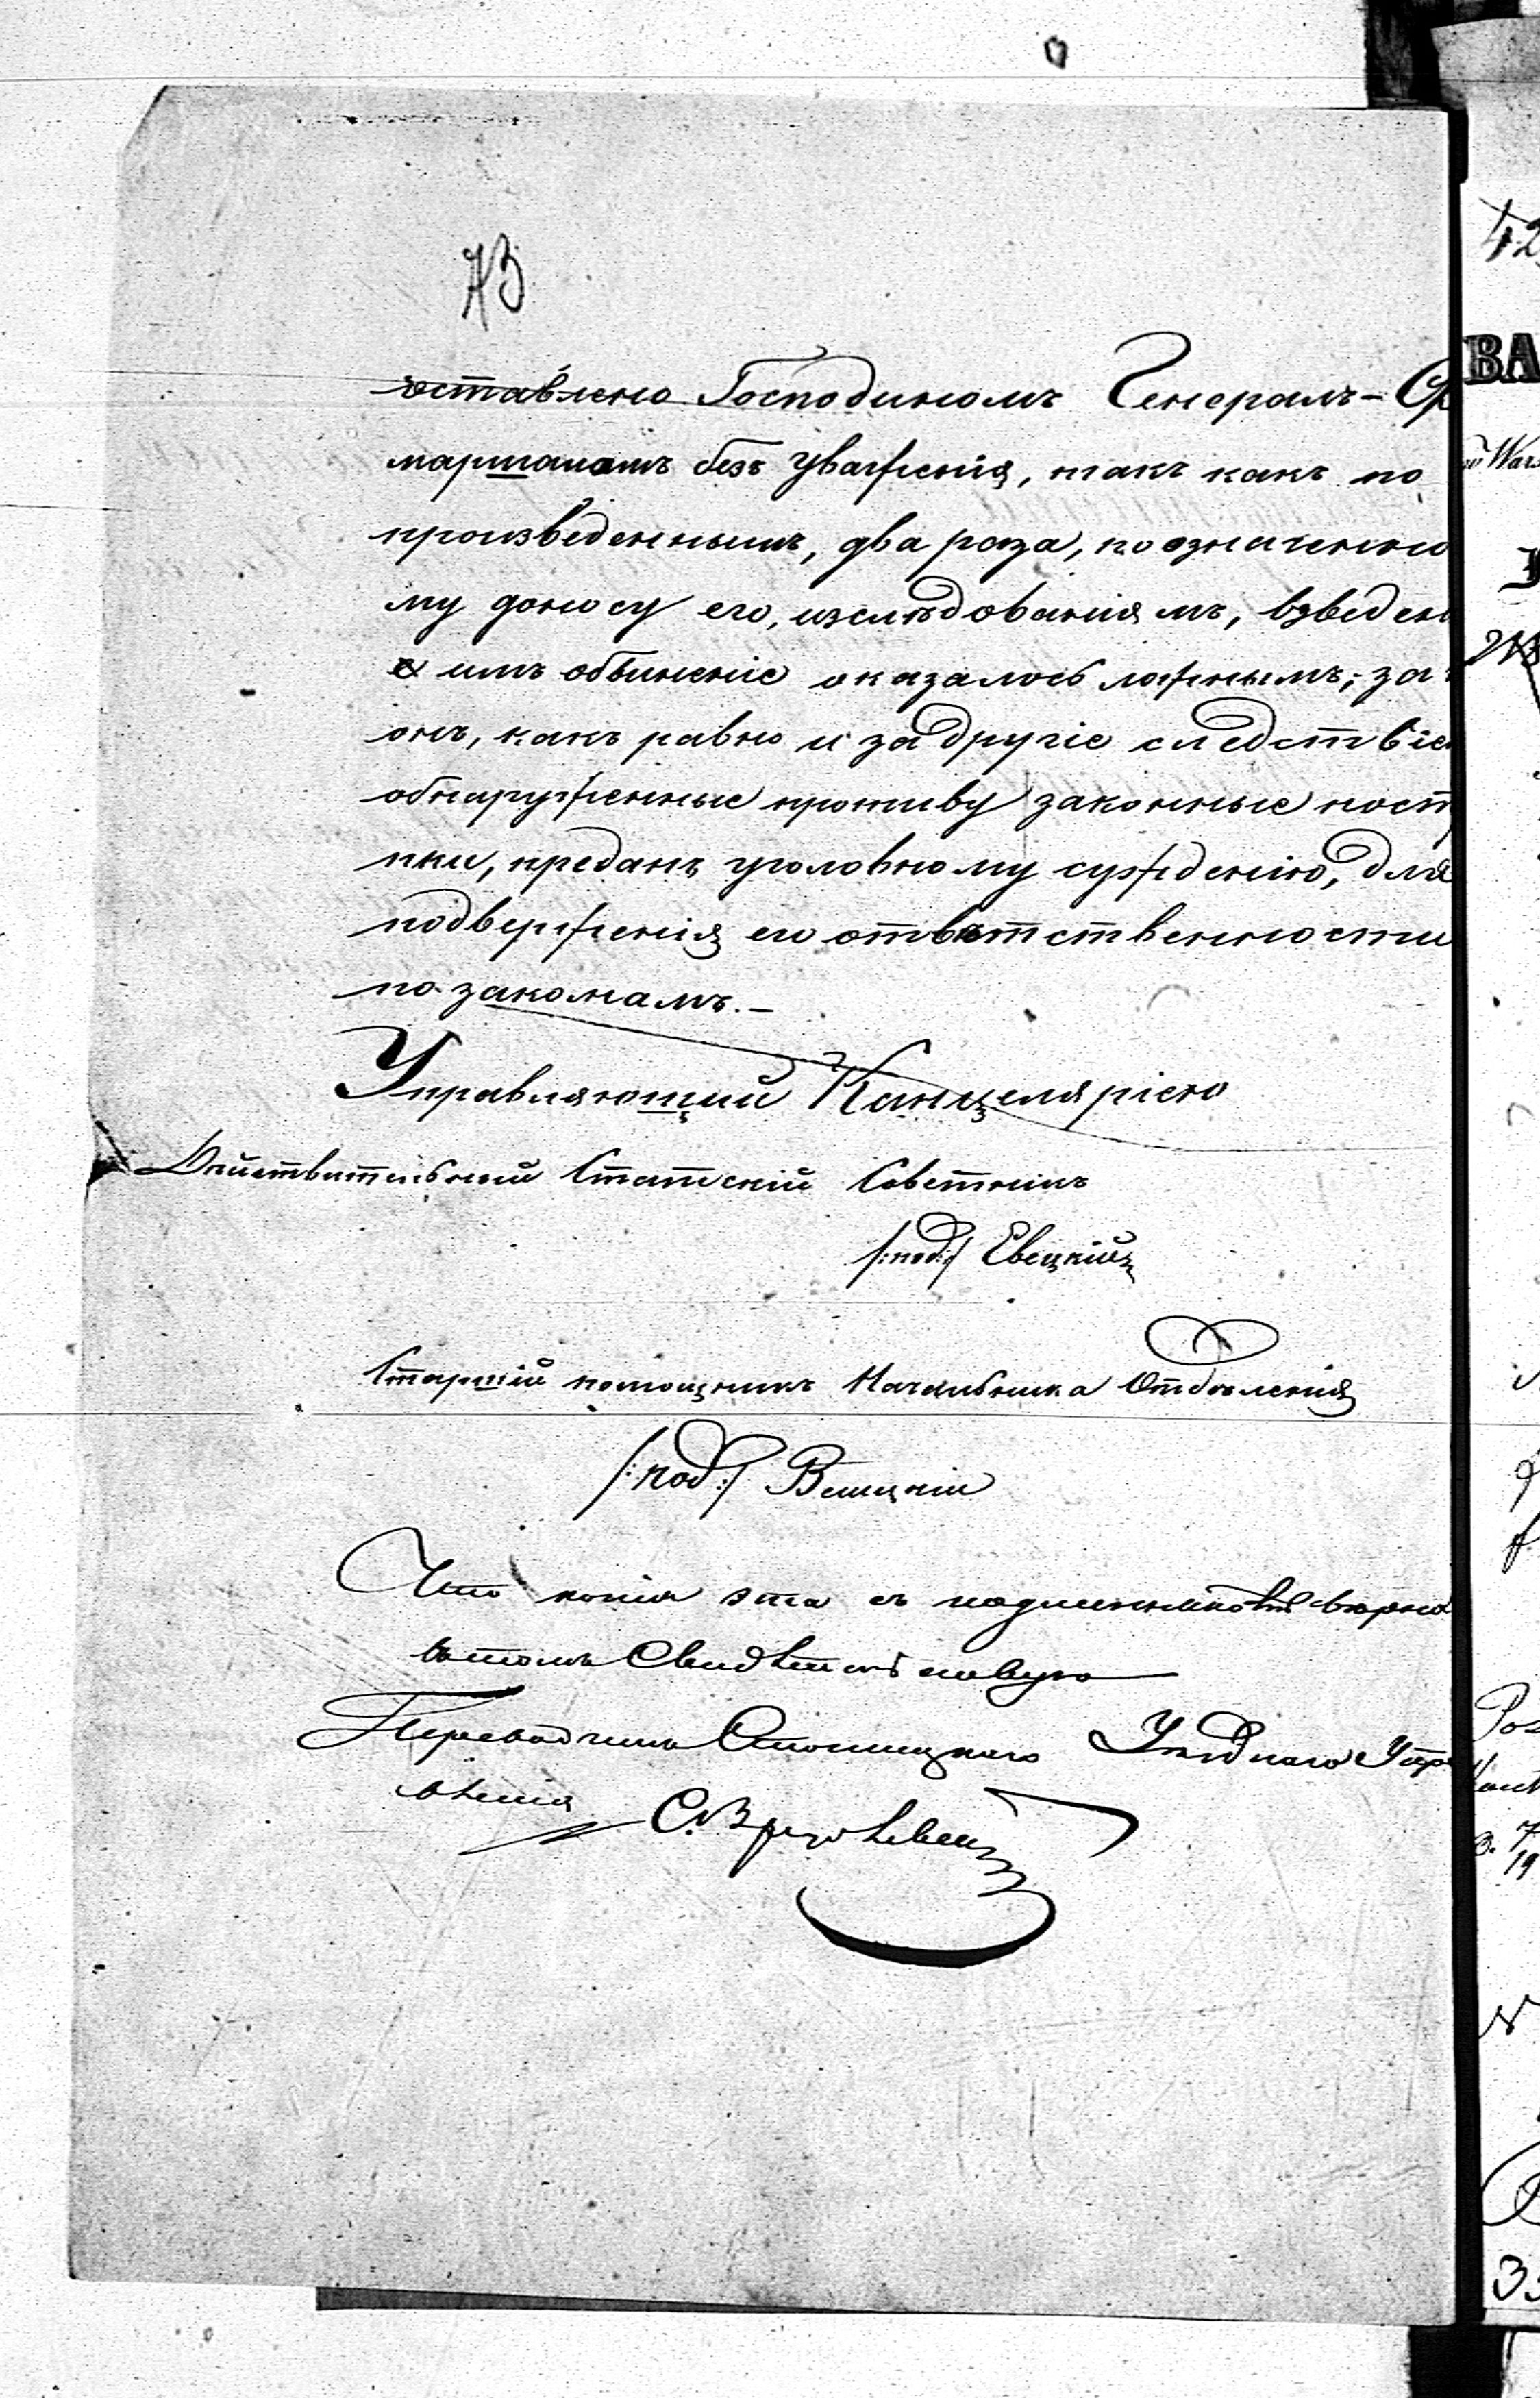 73
оставлено Господиномъ Генералъ-
маршаломъ безъ уваженія, такъ какъ по
произведеннымъ, два раза, по означенно
му доносу его, изслѣдованіямъ, взведен
е имъ обвиненіе оказалось ложнымъ; за
онъ, какъ равно и за другіе следствіе
обнаруженные противу законные пост
пки, преданъ уголовному сужденію, для
подверженія его отвѣтственности
по законамъ. —
Управляющій Канцеляріею
Дѣйствительный Статскій Советникъ
/:под:/ Евецкій
Старшій помощникъ Начальника Отдѣленія
/:под:/
Что копія эта съ подлинникомъ вѣрна
въ томъ Свидѣтельствую
Переводчикъ Стопницкаго Уѣзднаго Упр
вленія
42
ВА
War